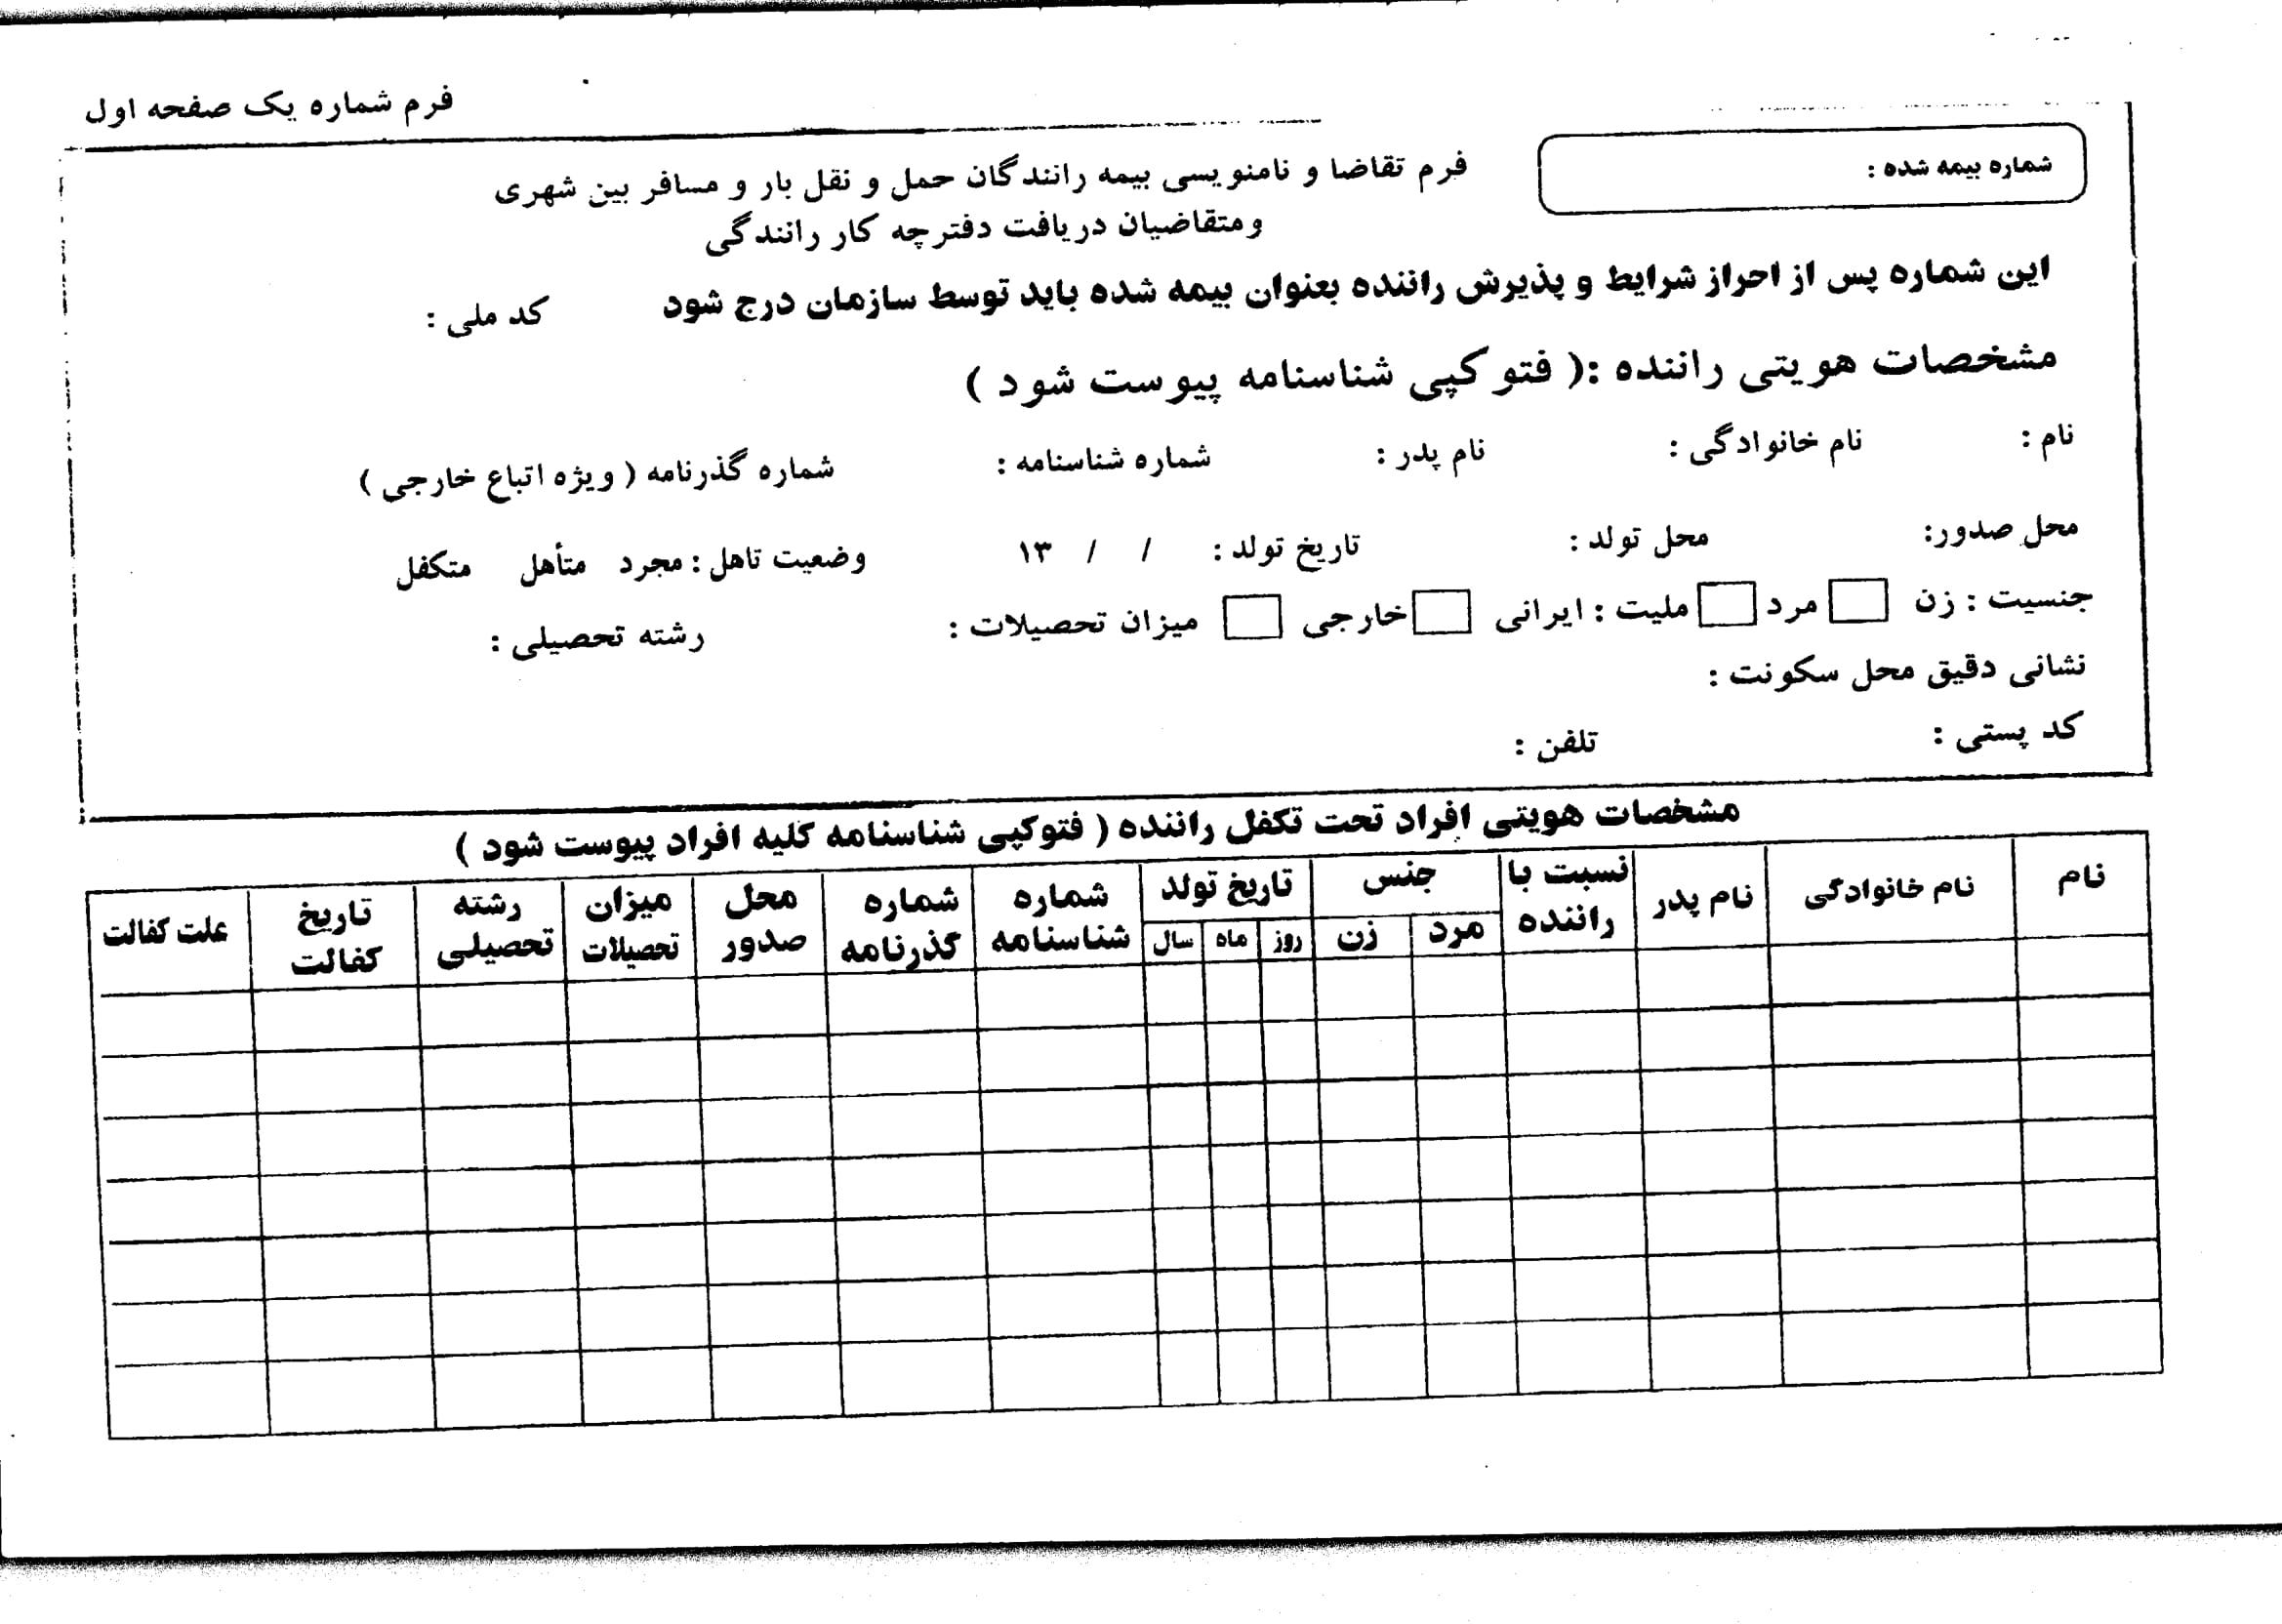 فرم شماره یک صفحه اول
شماره بیمه شده :
فرم تقاضا و نامنویسی بیمه رانندگان حمل و نقل بار و مسافر بین شهری
ومتقاضیان دریافت دفترچه کار رانندگی
این شماره پس از احراز شرایط و پذیرش راننده بعنوان بیمه شده باید توسط سازمان درج شود کد ملی :
مشخصات هویتی راننده :( فتو کپی شناسنامه پیوست شود )
نام : نام خانوادگی : نام پدر : شماره شناسنامه : شماره گذرنامه ( ویژه اتباع خارجی )
محل صدور: محل تولد : تاریخ تولد : / / ۱۳ وضعیت تاهل : مجرد متأهل متکفل
جنسیت : زن مرد ملیت : ایرانی خارجی میزان تحصیلات : رشته تحصیلی :
نشانی دقیق محل سکونت :
کد پستی : تلفن :
مشخصات هویتی افراد تحت تکفل راننده ( فتوکپی شناسنامه کلیه افراد پیوست شود )
نام نام خانوادگی نام پدر نسبت با راننده جنس تاریخ تولد شماره شناسنامه شماره گذرنامه محل صدور میزان تحصیلات رشته تحصیلی تاریخ کفالت علت کفالت
مرد زن روز ماه سال